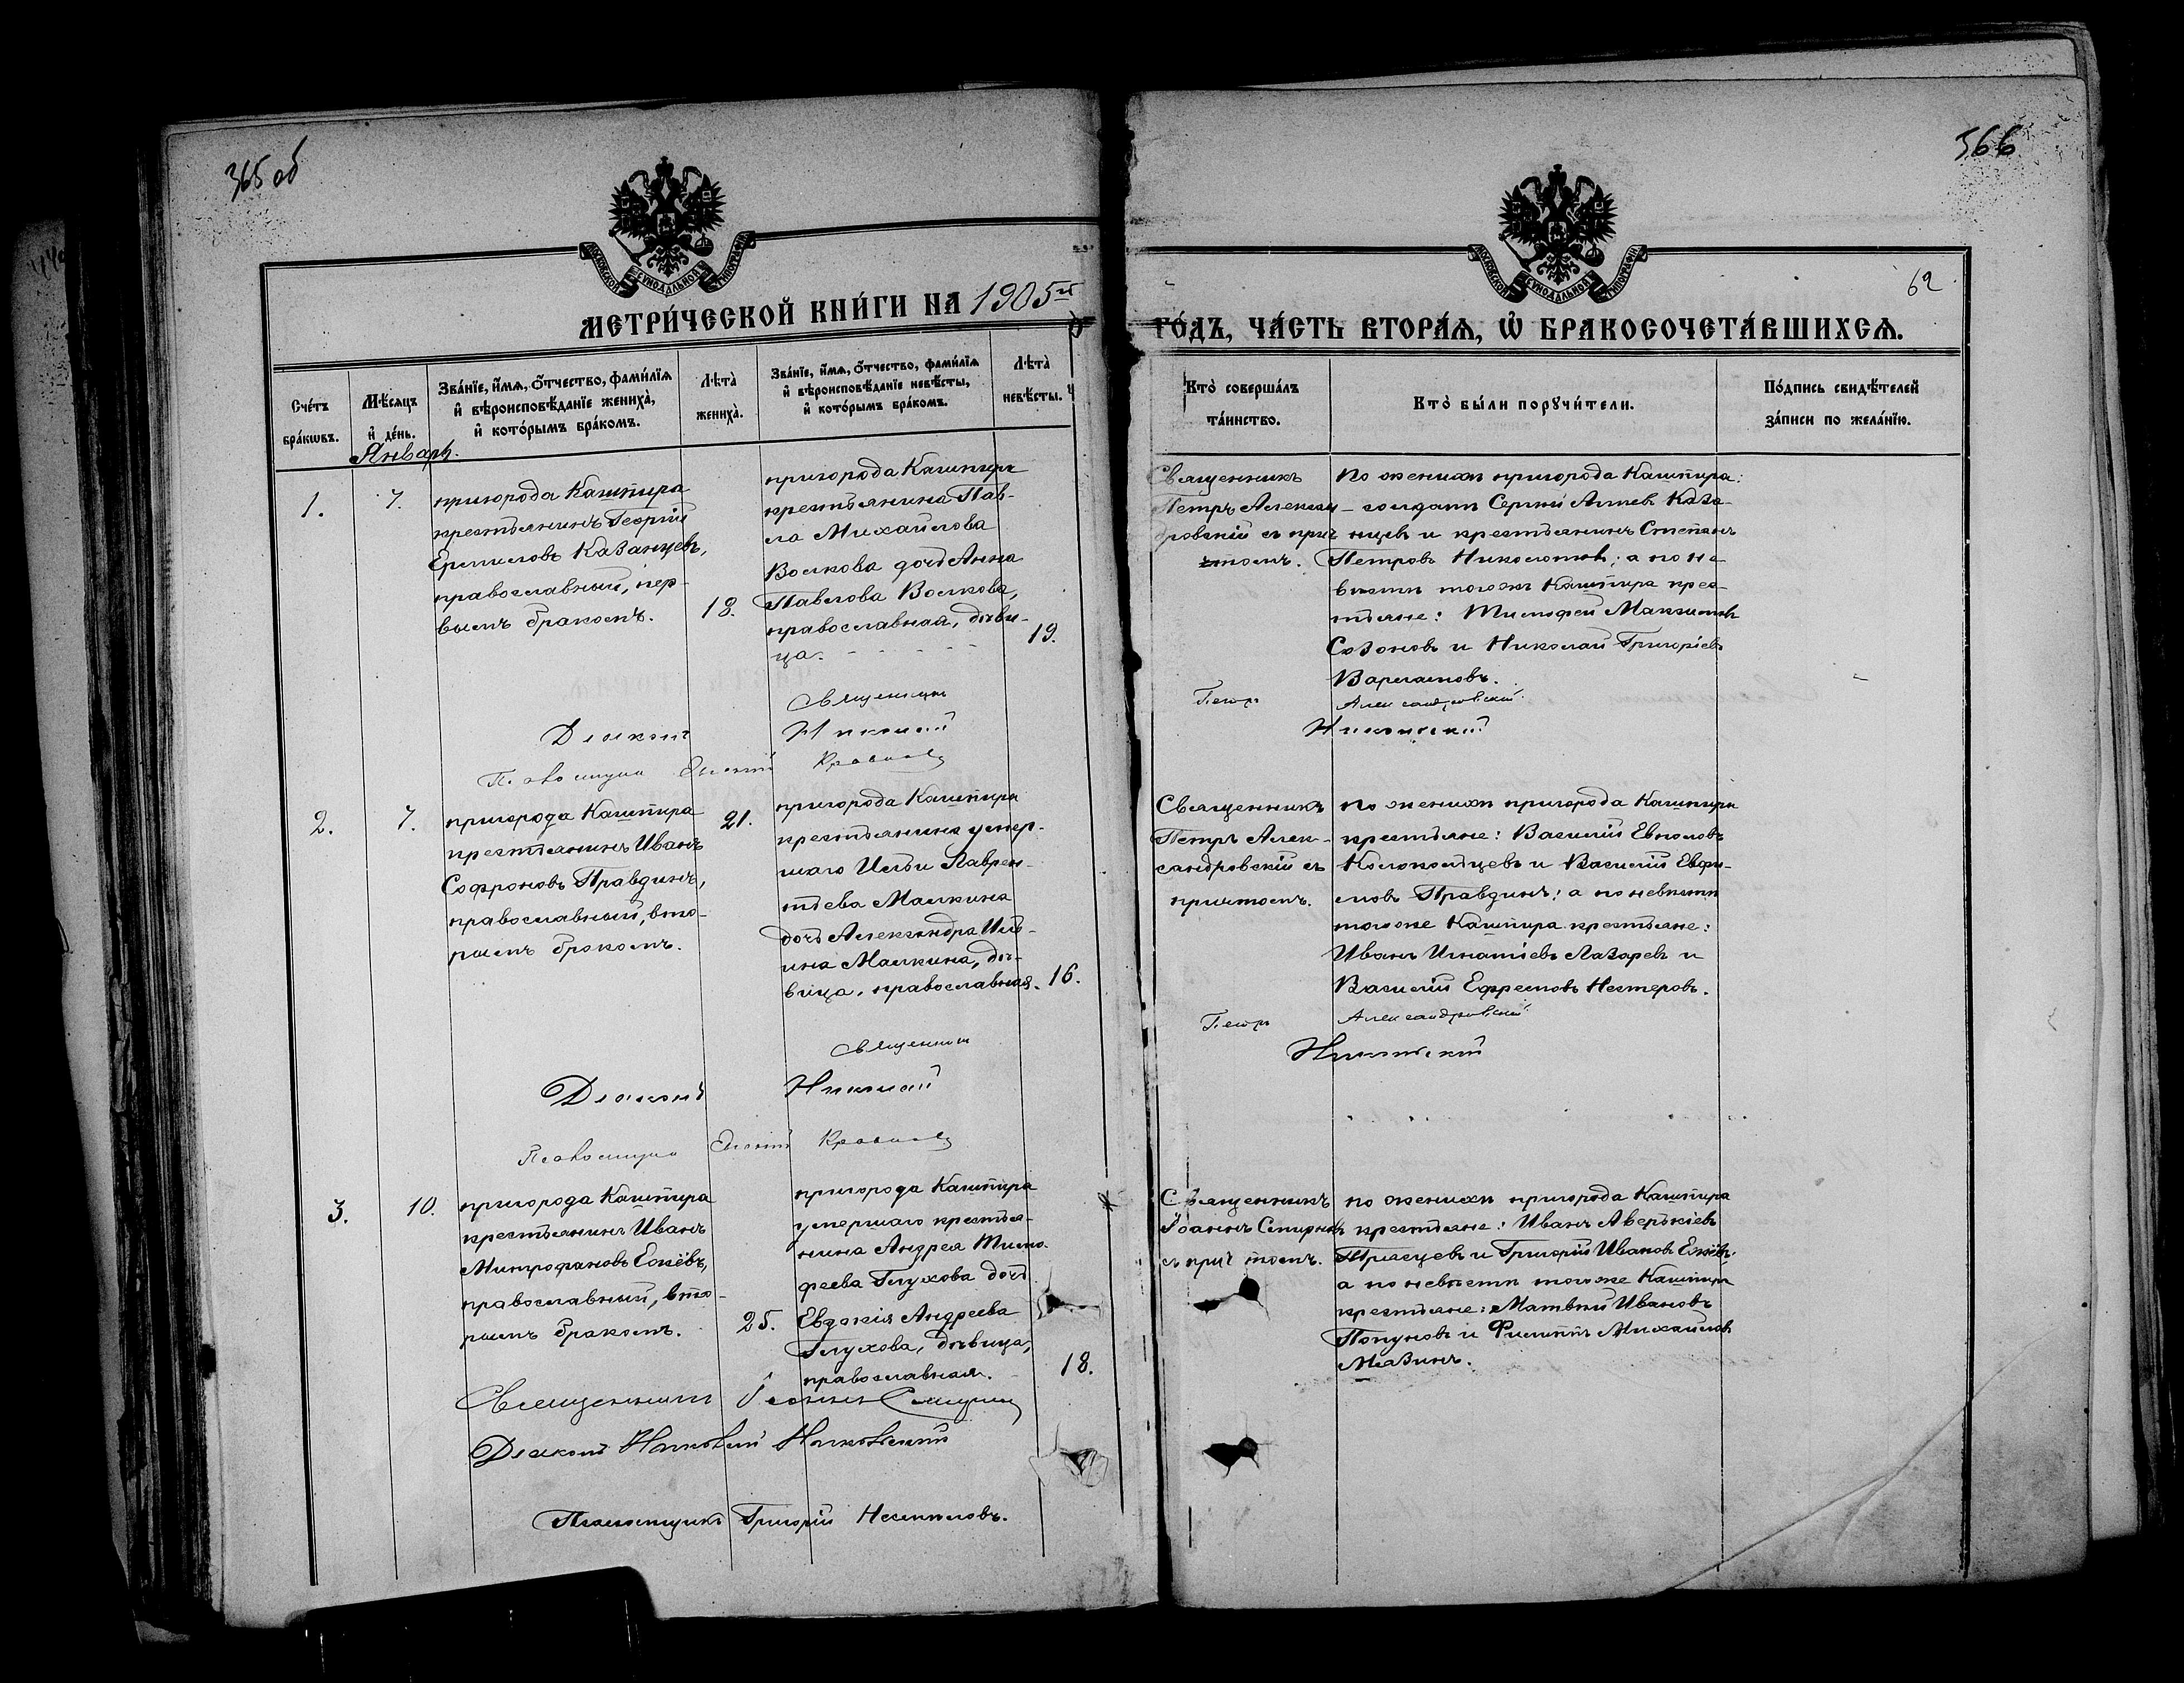 365 об
366
62
МОСКОВСКОЙ СѴНОДАЛЬНОЙ ТИПОГРАФІИ
МОСКОВСКОЙ СѴНОДАЛЬНОЙ ТИПОГРАФІИ
МЕТРИ́ЧЕСКОЙ КНИ́ГИ НА 1905й
ГО́ДЪ, ЧА́СТЬ ВТОРА́Ѧ, Ѡ҆ БРАКОСОЧЕТА́ВШИХСѦ.
Сче́тъ бра́кѡвъ.
Мѣ́сѧцъ и҆ де́нь.
Зва́нїе, и҆́мѧ, ѻ҆́тчество, фами́лїѧ
и҆ вѣроисповѣ́данїе жениха̀,
и҆ кото́рымъ бра́комъ.
Лѣта̀ жениха̀.
Зва́нїе, и҆́мѧ, ѻ҆́тчество, фами́лїѧ
и҆ вѣроисповѣ́данїе невѣ́сты,
и҆ кото́рымъ бра́комъ.
Лѣта̀ невѣ́сты.
Кто̀ соверша́лъ
та́инство.
Кто̀ бы́ли порꙋчи́тели.
По́дпись свидѣ́телей
за́писи по жела́нїю.
Январь.
1.
7.
пригорода Кашпира
крестьянинъ Георгій
Ермиловъ Казанцевъ,
православный, пер-
вымъ бракомъ.
18.
пригорода Кашпира
крестьянина Пав-
ла Михайлова
Волкова дочь Анна
Павлова Волкова,
православная, дѣви-
ца.
19.
Священникъ
Петръ Алексан-
дровскій съ прич
томъ.
По женихѣ пригорода Кашпира:
солдатъ Сергій Алтев Каза-
нцевъ и крестьянинъ Степанъ
Петровъ ; а по не-
вѣстѣ тогожъ Кашпира крес-
тьяне: Тимофей Максимовъ
Созоновъ и Николай Григоріевъ
Варламовъ.
Священникъ Петръ Александровскій
Діаконъ Николай Никольскій
Псаломщикъ
2.
7.
пригорода Кашпира
крестьянинъ Иванъ
Софроновъ Правдинъ,
православный, вто-
рымъ бракомъ.
21.
пригорода Кашпира
крестьянина умер-
шаго Ильи Лаврен-
тьева Малкина
дочь Александра Иль-
ина Малкина, дѣ-
вица, православная.
16.
Священникъ
Петръ Алек-
сандровскій съ
причтомъ.
по женихѣ пригорода Кашпира
крестьяне: Василій Евполовъ
Колокольцевъ и Василій Евфи-
мовъ Правдинъ; а по невѣстѣ
тогоже Кашпира крестьяне:
Иванъ Игнатіевъ Лазаревъ и
Василій Ефремовъ Нестеровъ.
Священникъ Петръ Александровскій
Діаконъ Николай Никольскій
Псаломщикъ
3.
10.
пригорода Кашпира
крестьянинъ Иванъ
Митрофановъ Ежёвъ,
православный, вто-
рымъ бракомъ.
25.
пригорода Кашпира
умершаго крестья-
нина Андрея Тимо-
феева Глухова дочь
Евдокія Андреева
Глухова, дѣвица,
православная.
18.
Священникъ
Іоаннъ Смирновъ
съ причтомъ.
по женихѣ пригорода Кашпира
крестьяне: Иванъ Аверькіевъ
и Григорій Ивановъ Ежёвъ;
а по невѣстѣ тогоже Кашпира
крестьяне: Матвѣй Ивановъ
Попуновъ и Филиппъ Михайловъ
Мазинъ.
Священникъ Іоаннъ Смирновъ
Діаконъ Николай Никольскій
Псаломщикъ Григорій